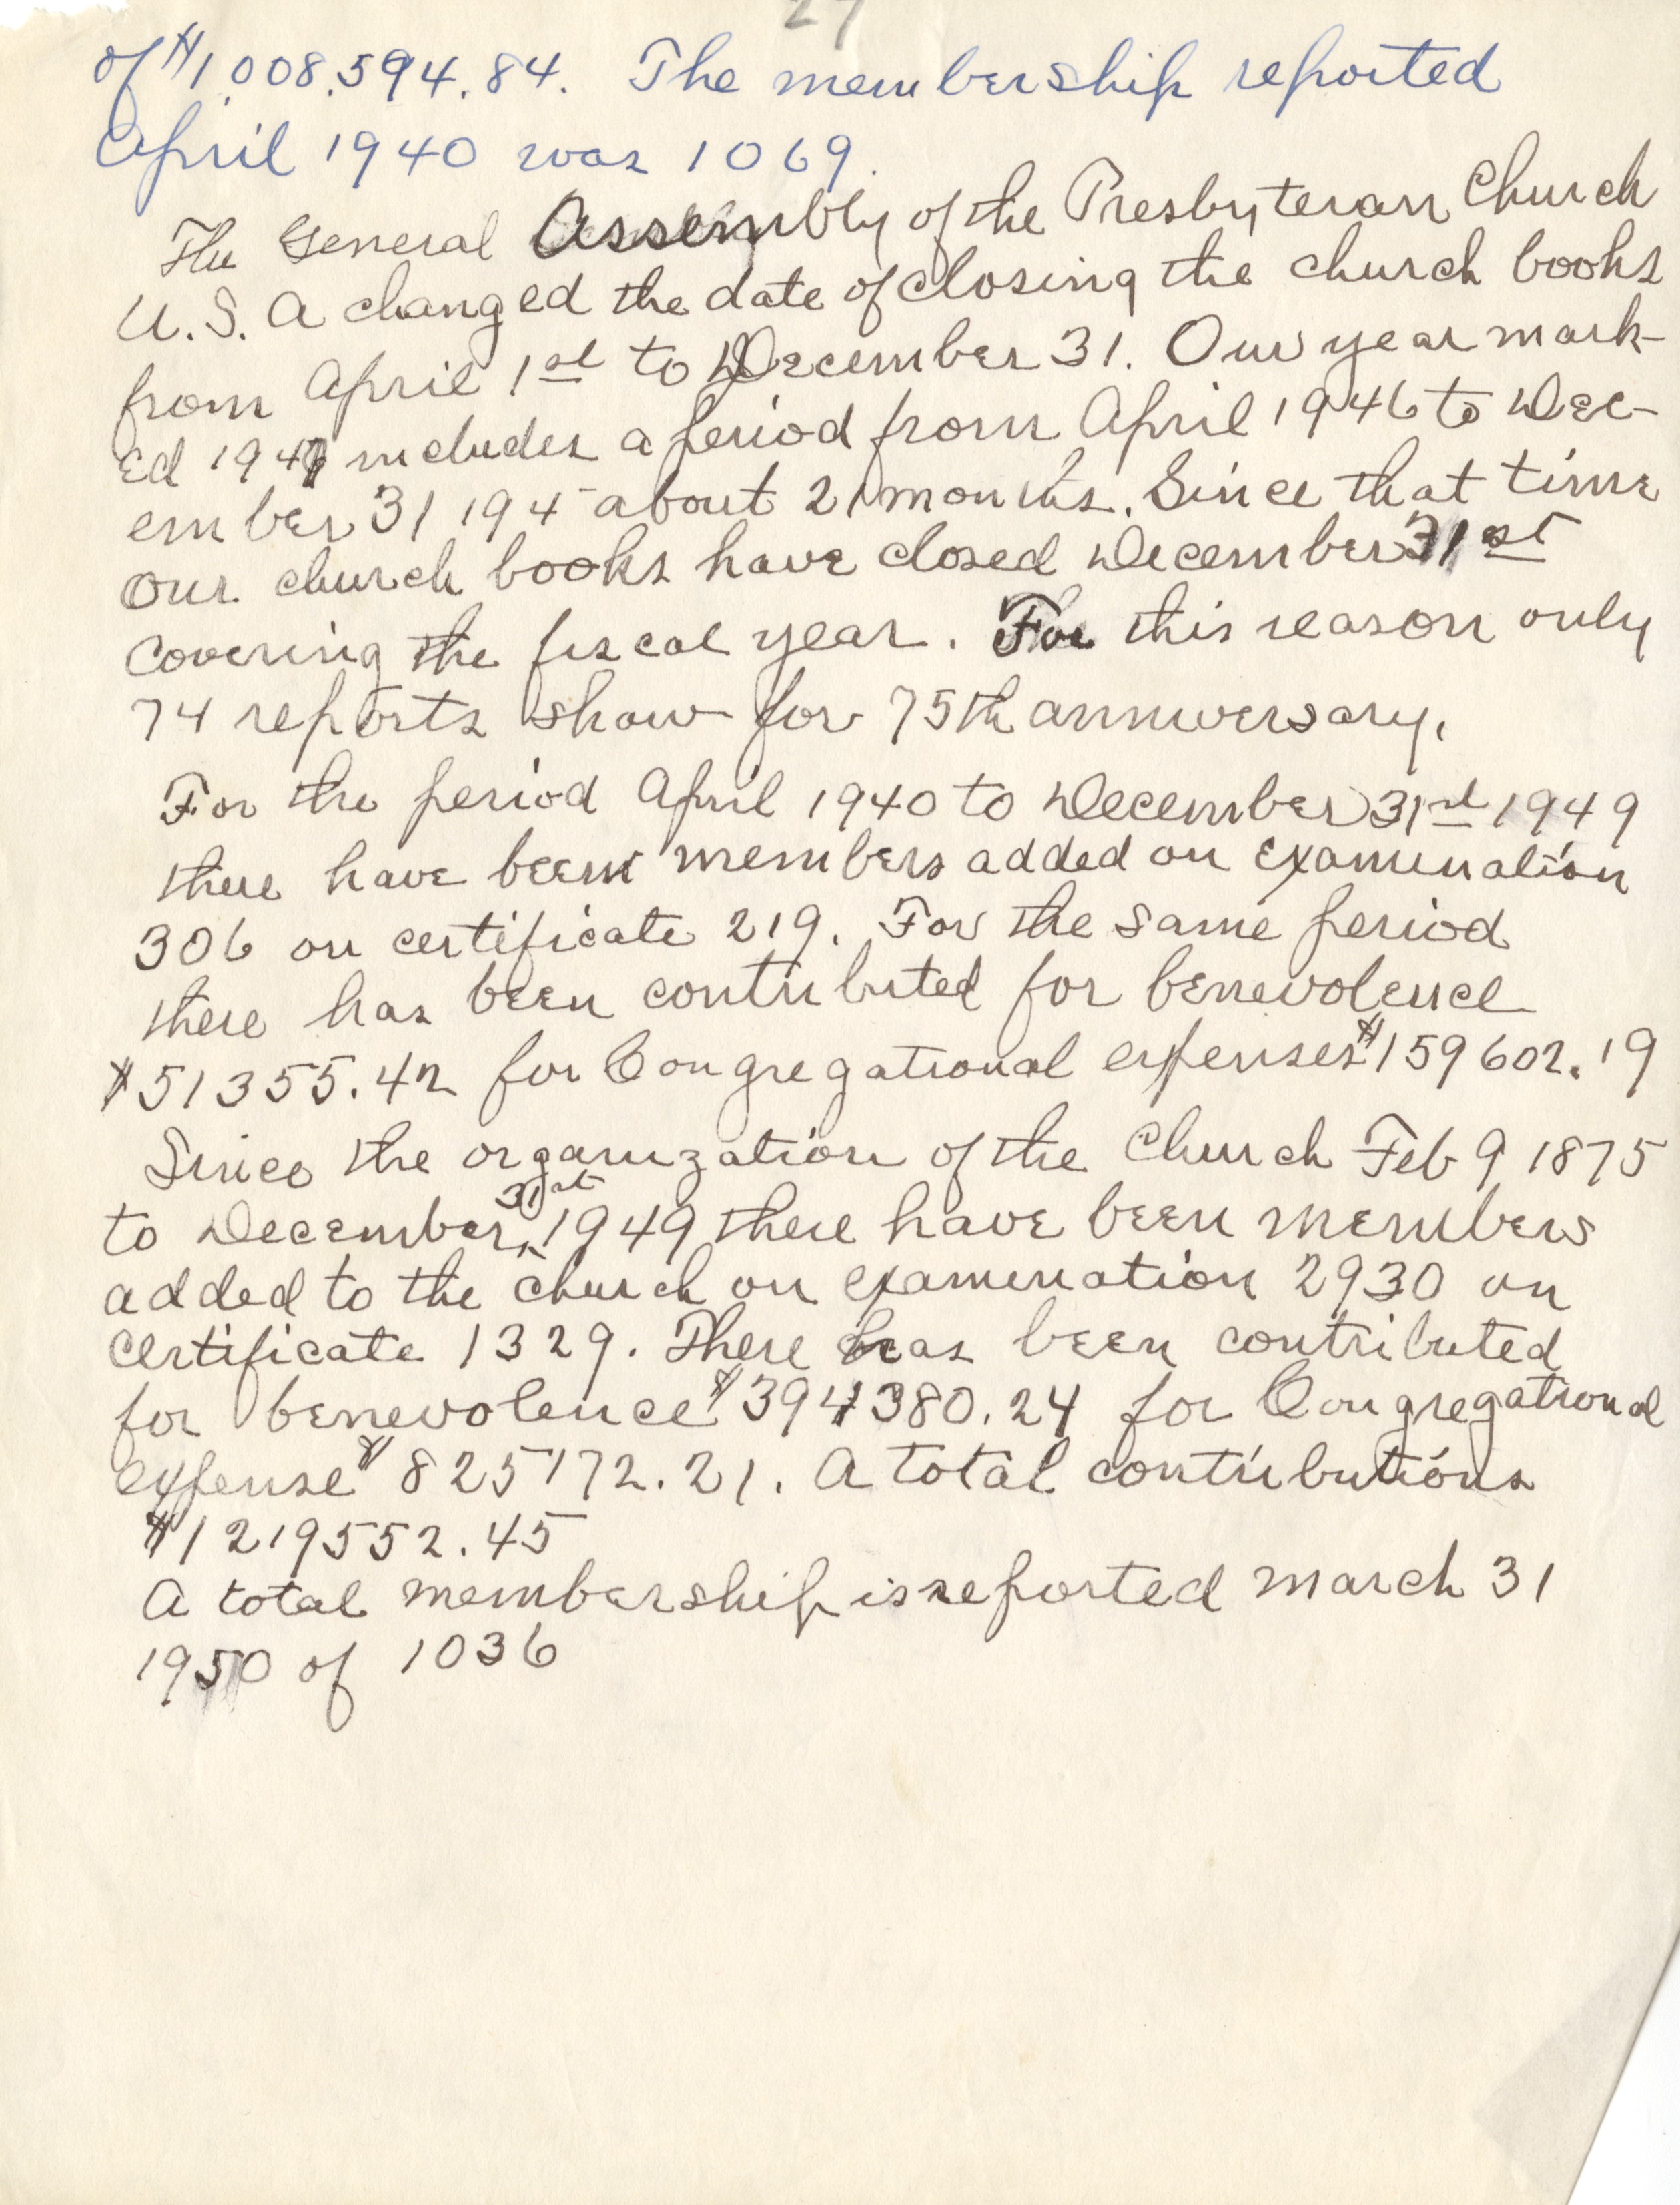 27
of $1,008,594.84. The membership reported
April 1940 was 1069.
The General Assembly of the Presbyterian Church
U.S. A changed the date of closing the church books
from April 1st to December 31. Our year mark-
ed 1947 includes a period from April 1946 to Dec-
ember 31 194 about 21 months. Since that time
our church books have closed December 31st
covering the fiscal year. For this reason only
74 reports show for 75th anniversary.
For the period April 1940 to December 31st 1949
there have been members added on examination
306 on certificate 219. For the same period
there has been contributed for benevolence
$51355.42 for Congregational expenses $159602.19
Since the organization of the Church Feb 9 1875
to December 31st 1949 there have been members
added to the church on examination 2930 on
certificate 1329. There has been contributed
for benevolence $394380.24 for Congregational
expense $825172.21. A total contributions
$1219552.45
A total membership is reported March 31
1950 of 1036